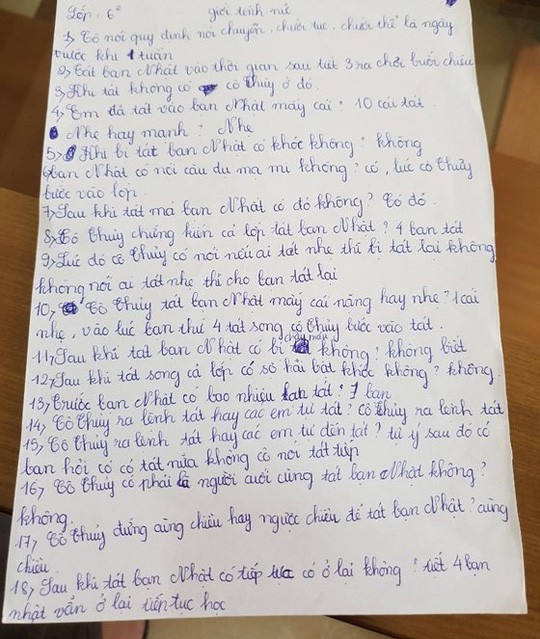 Lớp: 6² giới tính nữ
1, Cô nói quy định nói chuyện, chửi tục, chửi thề là ngày
trước khi 1 tuần
2, Tát bạn Nhật vào thời gian sau tiết 3 ra chơi buổi chiều
3, Khi tát không có cô Thủy ở đó.
4, Em đã tát vào bạn Nhật mấy cái? 10 cái tát
Nhẹ hay mạnh? Nhẹ
5, Khi bị tát bạn Nhật có khóc không? không
6, bạn Nhật có nói câu đu ma mi không? có, lúc cô Thủy
bước vào lớp.
7, Sau khi tát má bạn Nhật có đỏ không? Có đỏ
8, Cô Thủy chứng kiến cả lớp tát bạn Nhật? 4 bạn tát
9, Lúc đó cô Thủy có nói nếu ai tát nhẹ thì bị tát lại không
không nói ai tát nhẹ thì cho bạn tát lại
10, Cô Thủy tát bạn Nhật mấy cái nặng hay nhẹ? 1 cái
nhẹ, vào lúc bạn thứ 4 tát song cô Thủy bước vào tát.
11, Sau khi tát bạn Nhật có bị chảy máu không? không biết
12, Sau khi tát song cả lớp có sợ hãi bật khóc không? không.
13, Trước bạn Nhật có bao nhiêu bạn tát? 7 bạn
14, Cô Thủy ra lệnh tát hay các em tự tát? cô Thủy ra lệnh tát
15, Cô Thủy ra lệnh tát hay các em tự đến tát? tự ý sau đó có
bạn hỏi cô có tát nữa không cô nói tát tiếp
16, Cô Thủy có phải là người cuối cùng tát bạn Nhật không?
không.
17, Cô Thủy đứng cùng chiều hay ngược chiều để tát bạn Nhật? cùng
chiều.
18, Sau khi tát bạn Nhật có tiếp tục có ở lại không? tiết 4 bạn
nhật vẫn ở lại tiếp tục học